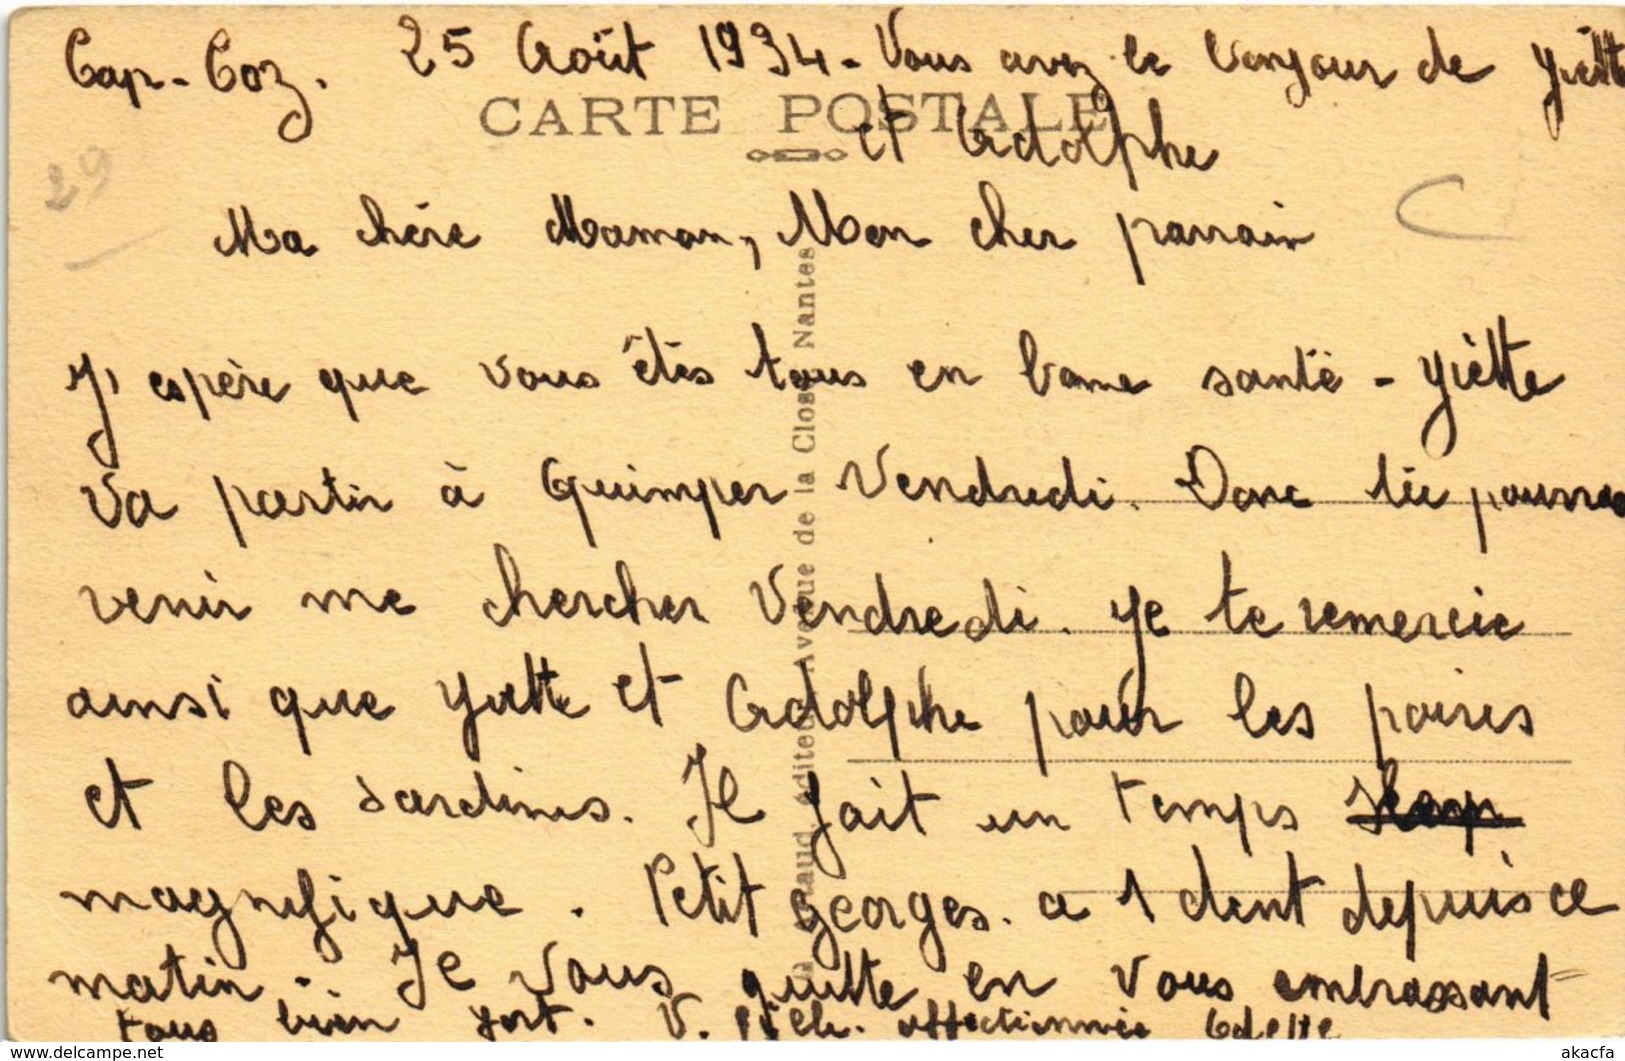 Cap-Coz. 25 Août 1934 - Vous avez le bonjour de Yvette
CARTE POSTALE
et Adolphe
29
Ma chère Maman, Mon cher parrain
J'espère que vous êtes tous en bonne santé - Yvette
va partir à Quimper Vendredi. Donc tu pourras
venir me chercher Vendredi. Je te remercie
ainsi que Yvette et Adolphe pour les poires
et les sardines. Il fait un temps
magnifique. Petit Georges. a 1 dent depuis ce
matin. Je vous quitte en vous embrassant
tous bien fort. V. affectionnée Odette
Avenue de la Close Nantes
akacfa